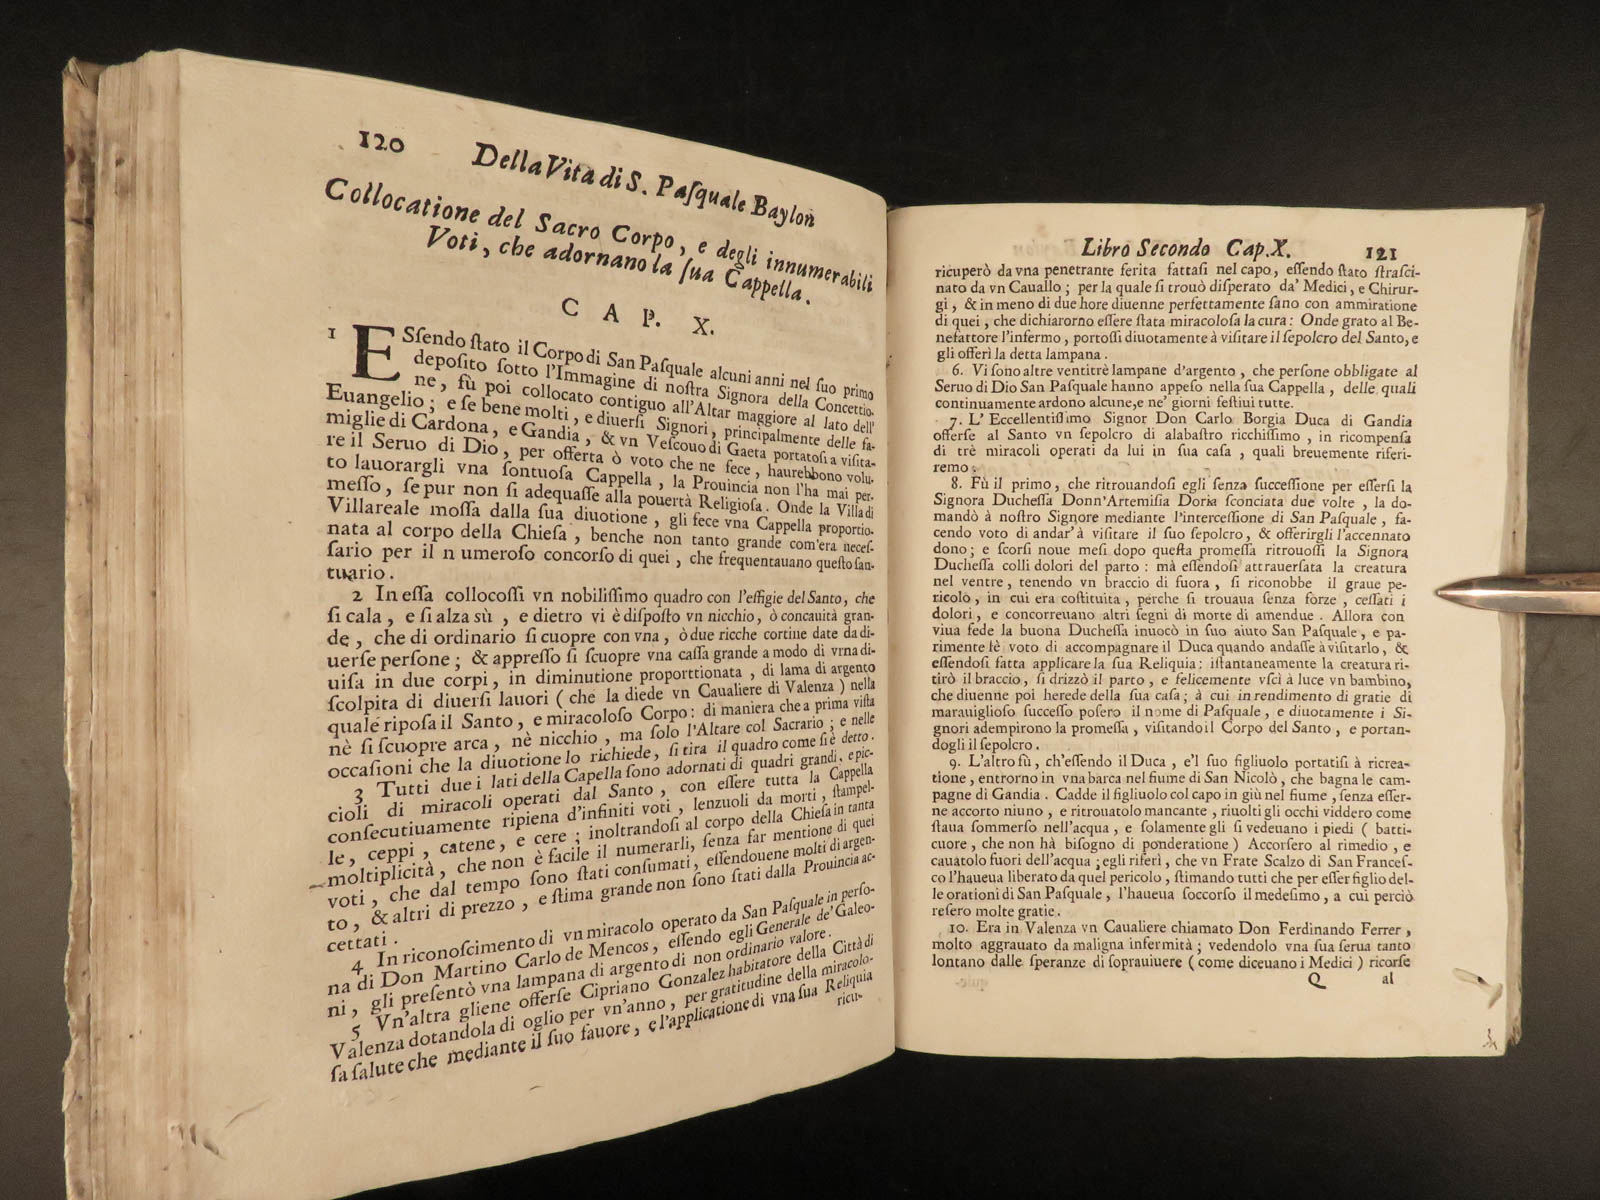 120
Della Vita di S. Paſquale Baylon
Collocatione del Sacro Corpo, e degli innumerabili
Voti, che adornano la ſua Cappella.
CAP. X.
1 ESſendo ſtato il Corpo di San Paſquale alcuni anni nel ſuo primo
depoſito ſotto l'Immagine di noſtra Signora della Concettio-
ne, fù poi collocato contiguo all'Altar maggiore al lato dell'
Euangelio; e ſe bene molti, e diuerſi Signori, principalmente delle fa-
miglie di Cardona, e Gandia, & vn Veſcouo di Gaeta portatoſi a viſita-
re il Seruo di Dio, per offerta ò voto che ne fece, haurebbono volu-
to lauorargli vna ſontuoſa Cappella, la Prouincia non l'ha mai per-
meſſo, ſe pur non ſi adequaſſe alla pouertà Religioſa. Onde la Villa di
Villareale moſſa dalla ſua diuotione, gli fece vna Cappella proportio-
nata al corpo della Chieſa, benche non tanto grande com'era neceſ-
ſario per il numeroſo concorſo di quei, che frequentauano queſto ſan-
tuario.
2 In eſſa collocoſſi vn nobiliſſimo quadro con l'effigie del Santo, che
ſi cala, e ſi alza sù, e dietro vi è diſpoſto vn nicchio, ò concauità gran-
de, che di ordinario ſi cuopre con vna, ò due ricche cortine date da di-
uerſe perſone; & appreſſo ſi ſcuopre vna caſſa grande a modo di vrna di-
uiſa in due corpi, in diminutione proporttionata, di lama di argento
ſcolpita di diuerſi lauori (che la diede vn Caualiere di Valenza) nella
quale ripoſa il Santo, e miracoloſo Corpo: di maniera che a prima viſta
nè ſi ſcuopre arca, nè nicchio, ma ſolo l'Altare col Sacrario; e nelle
occaſioni che la diuotione lo richiede, ſi tira il quadro come ſi è detto.
3 Tutti due i lati della Capella ſono adornati di quadri grandi, e pic-
cioli di miracoli operati dal Santo, con eſſere tutta la Cappella
conſecutiuamente ripiena d'infiniti voti, lenzuoli da morti, ſtampel-
le, ceppi, catene, e cere; inoltrandoſi al corpo della Chieſa in tanta
moltiplicità, che non è facile il numerarli, ſenza far mentione di quei
voti, che dal tempo ſono ſtati conſumati, eſſendouene molti di argen-
to, & altri di prezzo, e ſtima grande non ſono ſtati dalla Prouincia ac-
cettati.
4 In riconoſcimento di vn miracolo operato da San Paſquale in perſo-
na di Don Martino Carlo de Mencos, eſſendo egli Generale de' Galeo-
ni, gli preſentò vna lampana di argento di non ordinario valore.
5 Vn'altra gliene offerſe Cipriano Gonzalez habitatore della Città di
Valenza dotandola di oglio per vn'anno, per gratitudine della miracolo-
ſa ſalute che mediante il ſuo fauore, e l'applicatione di vna ſua Reliquia
ricu-
Libro Secondo Cap. X. 121
ricuperò da vna penetrante ferita fattaſi nel capo, eſſendo ſtato ſtraſci-
nato da vn Cauallo; per la quale ſi trouò diſperato da' Medici, e Chirur-
gi, & in meno di due hore diuenne perfettamente ſano con ammiratione
di quei, che dichiarorno eſſere ſtata miracoloſa la cura: Onde grato al Be-
nefattore l'infermo, portoſſi diuotamente à viſitare il ſepolcro del Santo, e
gli offerì la detta lampana.
6. Vi ſono altre ventitrè lampane d'argento, che perſone obbligate al
Seruo di Dio San Paſquale hanno appeſo nella ſua Cappella, delle quali
continuamente ardono alcune, e ne' giorni feſtiui tutte.
7. L' Eccellentiſſimo Signor Don Carlo Borgia Duca di Gandia
offerſe al Santo vn ſepolcro di alabaſtro ricchiſſimo, in ricompenſa
di trè miracoli operati da lui in ſua caſa, quali breuemente riferi-
remo.
8. Fù il primo, che ritrouandoſi egli ſenza ſucceſſione per eſſerſi la
Signora Ducheſſa Donn'Artemiſia Doria ſconciata due volte, la do-
mandò à noſtro Signore mediante l'interceſſione di San Paſquale, fa-
cendo voto di andar'à viſitare il ſuo ſepolcro, & offerirgli l'accennato
dono; e ſcorſi noue meſi dopo queſta promeſſa ritrouoſſi la Signora
Ducheſſa colli dolori del parto: mà eſſendoſi attrauerſata la creatura
nel ventre, tenendo vn braccio di fuora, ſi riconobbe il graue pe-
ricolo, in cui era coſtituita, perche ſi trouaua ſenza forze, ceſſati i
dolori, e concorreuano altri ſegni di morte di amendue. Allora con
viua fede la buona Ducheſſa inuocò in ſuo aiuto San Paſquale, e pa-
rimente fè voto di accompagnare il Duca quando andaſſe à viſitarlo, &
eſſendoſi fatta applicare la ſua Reliquia: iſtantaneamente la creatura ri-
tirò il braccio, ſi drizzò il parto, e felicemente vſcì à luce vn bambino,
che diuenne poi herede della ſua caſa; à cui in rendimento di gratie di
marauiglioſo ſucceſſo poſero il nome di Paſquale, e diuotamente i Si-
gnori adempirono la promeſſa, viſitando il Corpo del Santo, e portan-
dogli il ſepolcro.
9. L'altro fù, ch'eſſendo il Duca, e'l ſuo figliuolo portatiſi à ricrea-
tione, entrorno in vna barca nel fiume di San Nicolò, che bagna le cam-
pagne di Gandia. Cadde il figliuolo col capo in giù nel fiume, ſenza eſſer-
ne accorto niuno, e ritrouatolo mancante, riuolti gli occhi viddero come
ſtaua ſommerſo nell'acqua, e ſolamente gli ſi vedeuano i piedi (batti-
cuore, che non hà biſogno di ponderatione) Accorſero al rimedio, e
cauatolo fuori dell'acqua; egli riferì, che vn Frate Scalzo di San Franceſ-
co l'haueua liberato da quel pericolo, ſtimando tutti che per eſſer figlio del-
le orationi di San Paſquale, l'haueua ſoccorſo il medeſimo, a cui perciò
reſero molte gratie.
10. Era in Valenza vn Caualiere chiamato Don Ferdinando Ferrer,
molto aggrauato da maligna infermità; vedendolo vna ſua ſerua tanto
lontano dalle ſperanze di ſoprauiuere (come diceuano i Medici) ricorſe
Q al